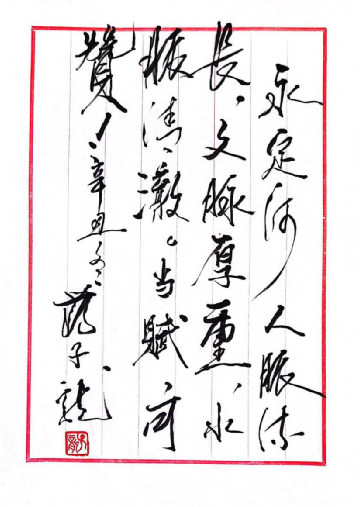 永定河，人脉流
长，文脉厚重，水
脉清澈。当赋可
赞！辛丑冬
蒋子龙